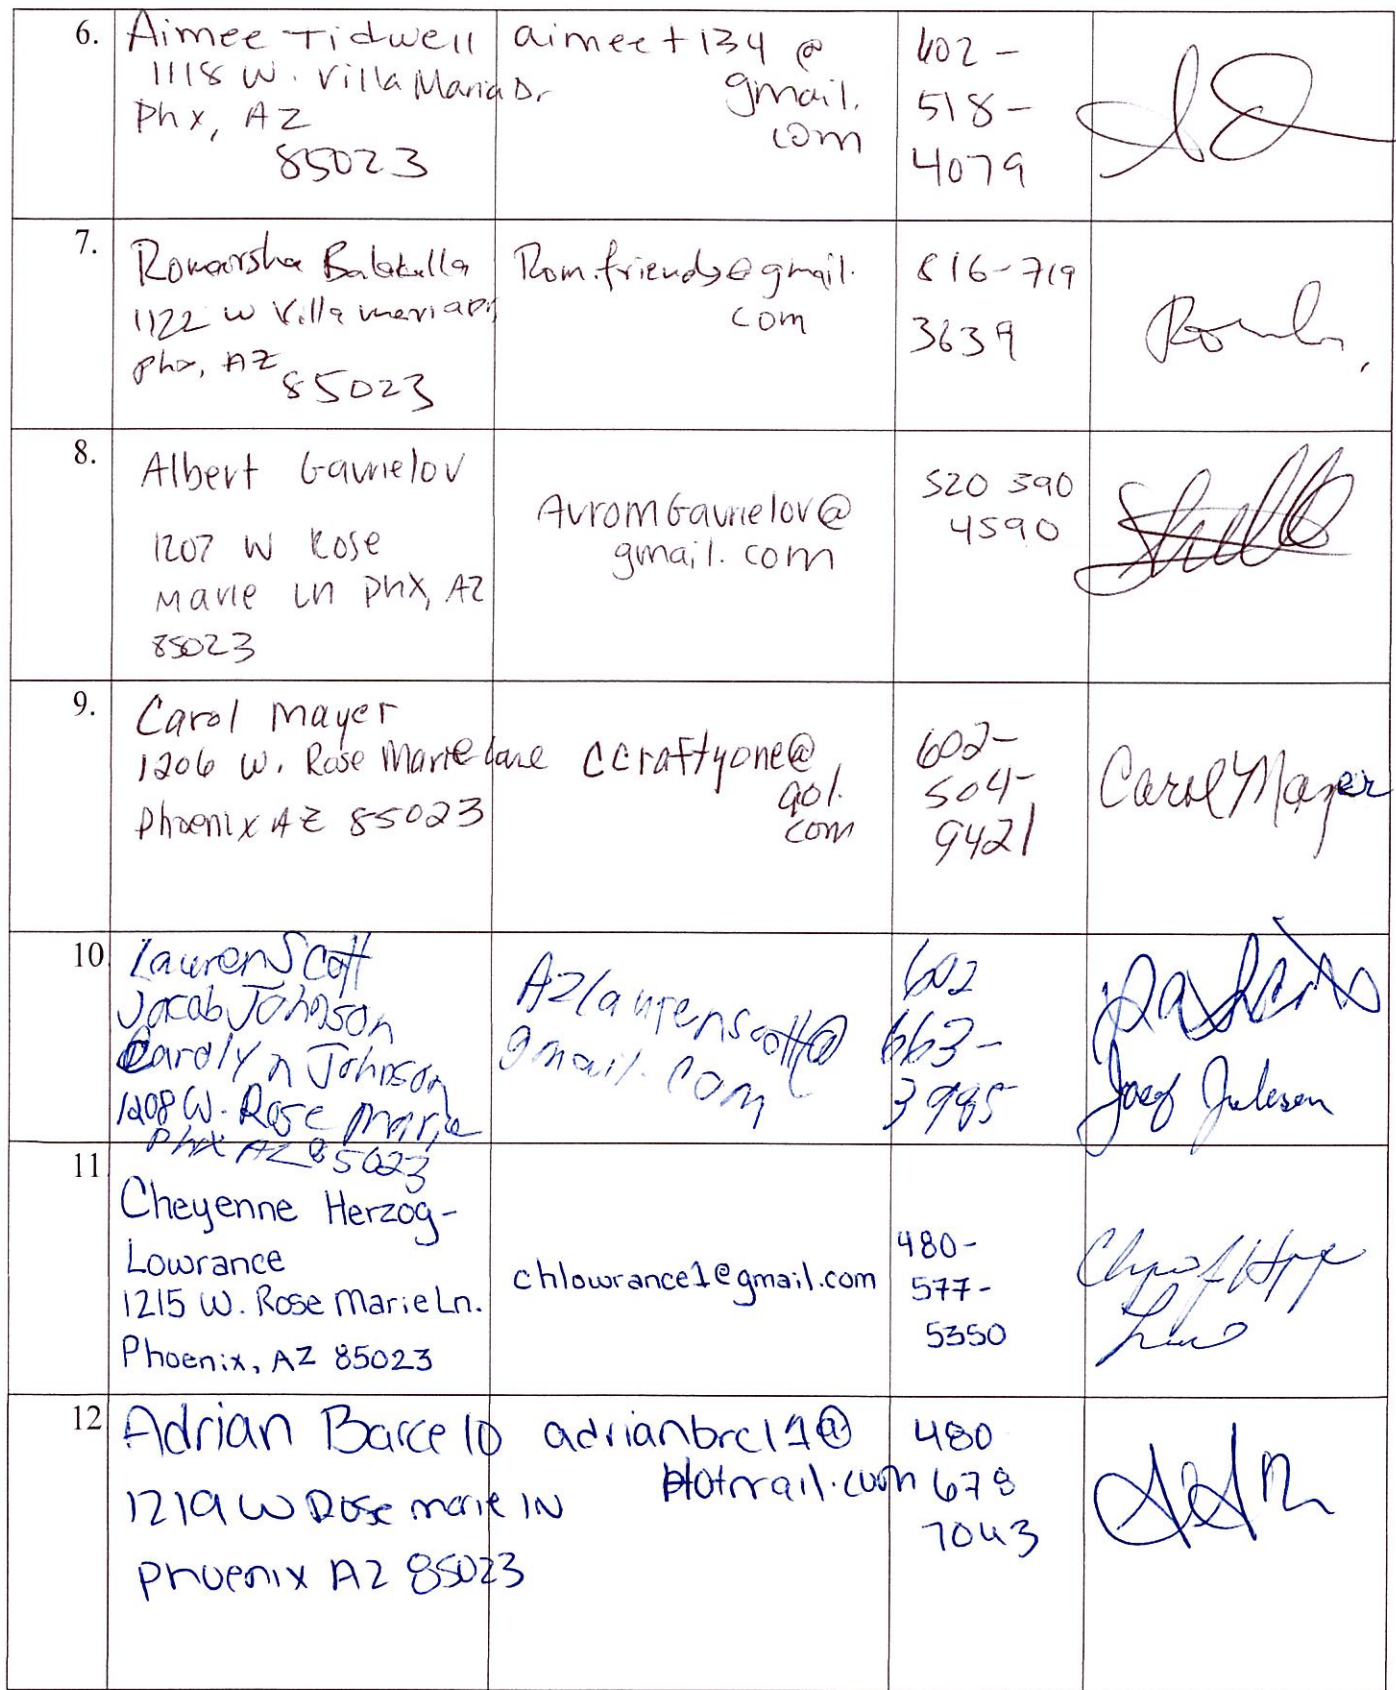 6. Aimee Tidwell
1118 W. Villa Maria Dr
Phx, AZ
85023
aimeet134@
gmail.
com
602-
518-
4079
7.
1122 W Villa maria Dr
phx, AZ
85023
Rom.friends@gmail.
com
816-719
3639
8.
Albert Gavrielov
1207 W Rose
Marie Ln Phx, AZ
85023
AvromGavrielov@
gmail.com
520 390
4590
9.
Carol Mayer
1206 W. Rose Marie Lane
Phoenix AZ 85023
ccraftyone@
aol.
com
602-
504-
9421
Carol Mayer
10
Lauren Scott
Jacob Johnson
Carolyn Johnson
1208 W. Rose Marie
Phx AZ 85023
AZlaurenscott@
gmail.com
602
663-
3985
11
Cheyenne Herzog-
Lowrance
1215 W. Rose Marie Ln.
Phoenix, AZ 85023
chlowrance1@gmail.com
480-
577-
5350
12
Adrian Barcelo
1219 W Rose marie LN
Phoenix AZ 85023
adrianbrcl1@
Hotmail.com
480
678
7043